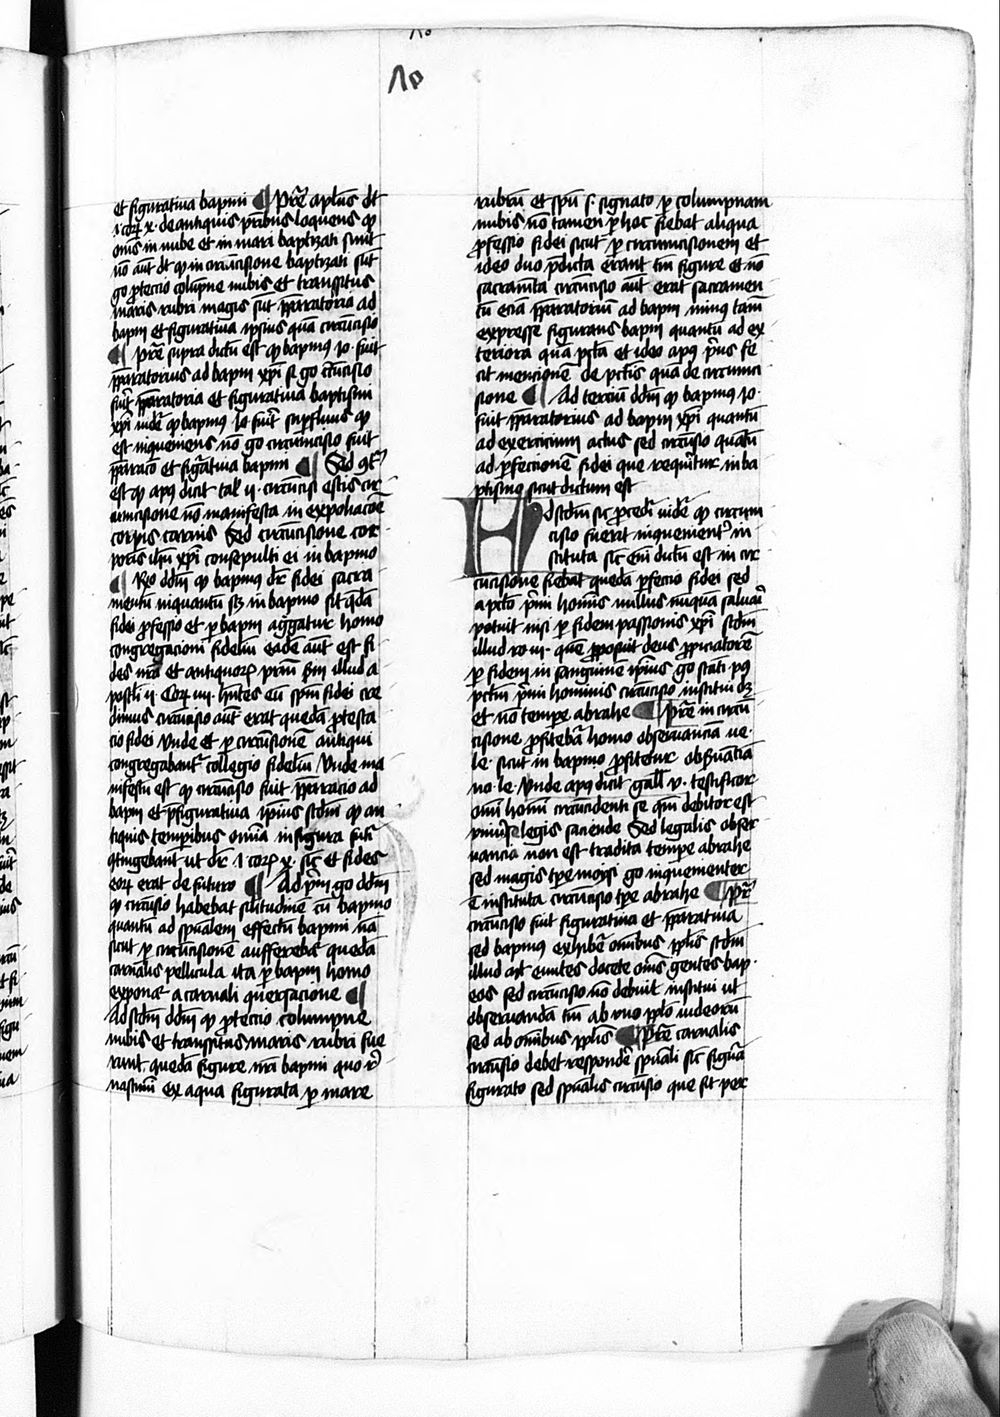 70
et figuratiua bapmi ¶ Pret̃ aplus dt
1 cor x. de antiquis pribus loquens qp
om̃s in nube et in mari baptizati sunt
nõ aut dt qp in circũcisione baptizati sũt
go ptectio colũpne nubis et transsitus
maris rubri magis sũt pparatoria ad
bapm et figuratiua ipsius quã circũcisio
¶ Pret̃ supra dictũ est qp bapmus io. fuit
pparatorius ad bapm xpi si go circũcisio
fuit pparatoria et figuratiua baptismi
xpi uidet̃ qp bapmus Io fuit supfluus qp
est inquemens nõ go circumcisio fuit
pparatõ et figuratiua bapmi ¶ Sed 9tª
est qp aps dicit Col ii. circũcisi estis cir
cumcisione nõ manifesta in expoliacõe
corpis carnis Sed circũcisione cor
poris ihũ xpi consepulti ei in bapmo
¶ Rõ ddm qp bapmus dr̃ fidei sacra
mentũ inquantũ sz in bapmo fit qdã
fidei pfessio et p bapm aggatur homo
congregacioni fideliũ eadẽ aut est fi
des nrã et antiquorum patrũ scdm illud a
postli ii. Cor iiii. hñtes eũ spm fidei cre
dimus circũcisio aut erat quedã ptesta
cio fidei Vnde et p circũcisionẽ antiqui
congregabant̃ collegio fideliũ Vnde ma
nifestũ est qp circũcisio fuit pparacio ad
bapm et pfiguratiua ipsius scdm qp an
tiquis temporibus omnia in figura
9tingebant ut dr̃ 1 cor x. sic et fides
eorum erat de futuro ¶ Ad pm go ddm
qp circũcisio habebat silitudinẽ cũ bapmo
quantũ ad spũalem effectũ bapmi nã
sicut p circũcisionẽ aufferebat̃ quedã
carnalis pellicula ita p bapm homo
exponat̃ a carnali 9uersacione ¶
Ad scdm ddm qp ptectio columpne
nubis et transsitus maris rubri fue
runt quedã figure nri bapmi quo re
nascim̃ ex aqua figurata p mare
rubrũ et spũ s. signato p columpnam
nubis nõ tamen p hoc fiebat aliqua
pfessio fidei sicut p circumcisionem et
ideo duo pdicta erant tm figure et nõ
sacramẽta circũcisio aut erat sacramen
tũ eciã pparatoriũ ad bapm minus tamẽ
expresse figurans bapm quantũ ad ex
teriora quã pdcta et ideo aps prius fe
cit mencionẽ de pdctis quã de circumci
sione ¶ Ad terciũ ddm qp bapmus Io.
fuit pparatorius ad bapm xpi quantũ
ad exercicium actus sed circũcisio quãtũ
ad pfectionẽ fidei que requirit̃ in ba
ptismo sicut dictum est
Ad scdm sic procedit̃ uidet̃ qp circum
cisio fuerit inquenient̃ in
stituta sic em dictũ est in cir
cumcisione fiebat quedã pfessio fidei sed
a pctõ pmi homĩs nullus nũquã saluari
potuit nisi p fidem passionis xpi scdm
illud ro iii. quẽ pposuit deus ppiciatorẽ
p fidem in sanguinẽ ipsius go stati post
pctm pmi hominis circũcisio institui dz
et nõ tempe abrahe ¶ Pret̃ in circũ
cisione pfitebat̃ homo obseruanciã ue.
le. sicut in bapmo pfitetur obsuãciã
no. le. Vnde aps dicit gall v. testificor
omĩ homĩ circũcidenti se qm debitor est
vniuse legis faciende Sed legalis obser
uancia non est tradita tempe abrahe
sed magis tpe moysi go inquenienter
ẽ instituta circũcisio tpe abrahe ¶ Pret̃
circũcisio fuit figuratiua et pparatiua
sed bapmus exhibet̃ omĩbus pplis scdm
illud mt euntes docete oms gentes bap.
eos sed circũcisio nõ debuit institui ut
obseruanda tm ab vno pplo iudeorũ
sed ab omĩbus pplis ¶ Pret̃ carnalis
circũcisio debet respondere spũali sic figura
figurato sed spũalis circũcisio que fit per